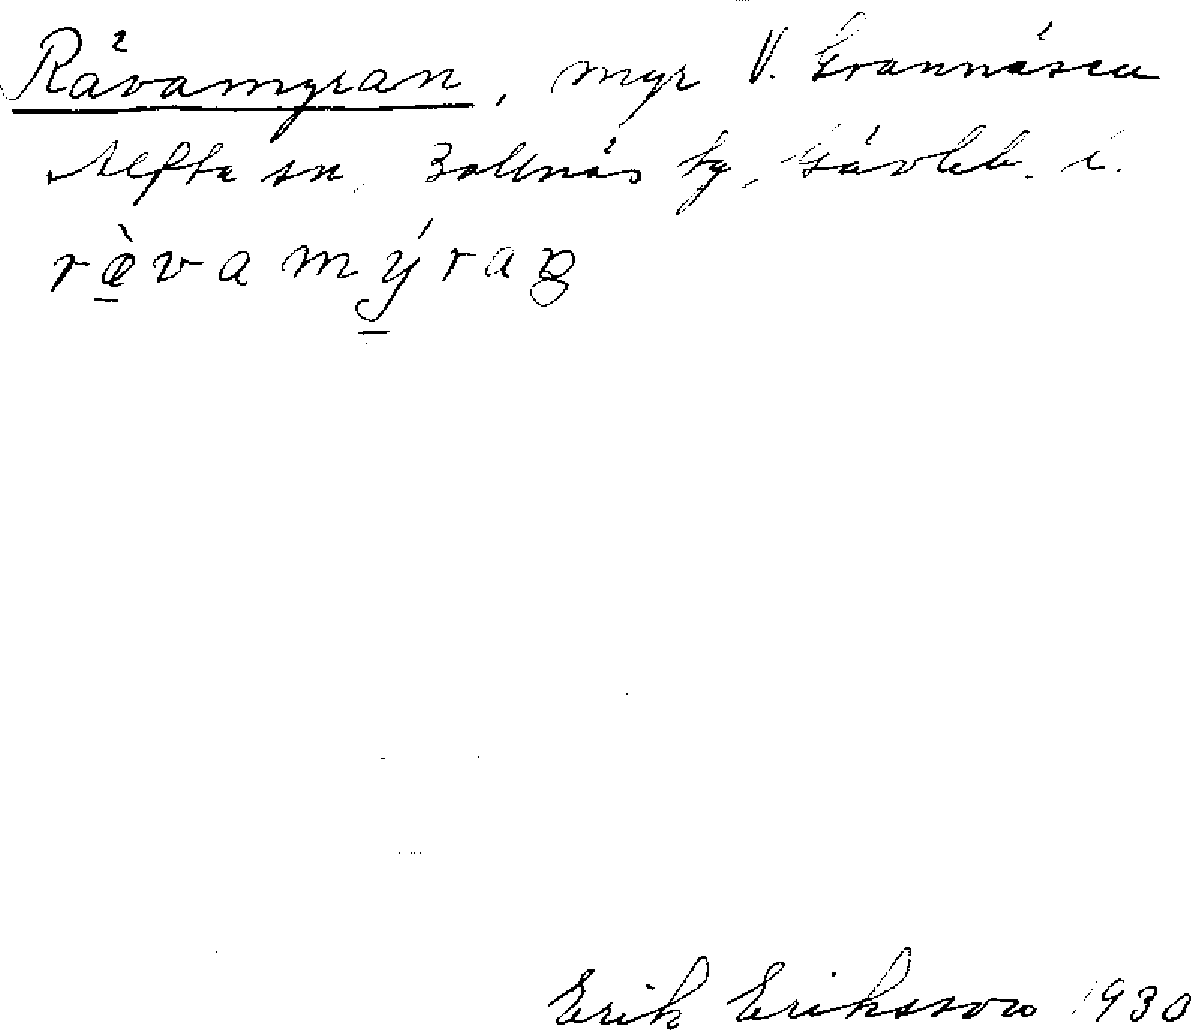 Rävamyran, myr V. Grannäsen
Alfta sn, Bollnäs tg, Gävleb. l.
ræ̀vamýraŋ
Erik Eriksson 1930